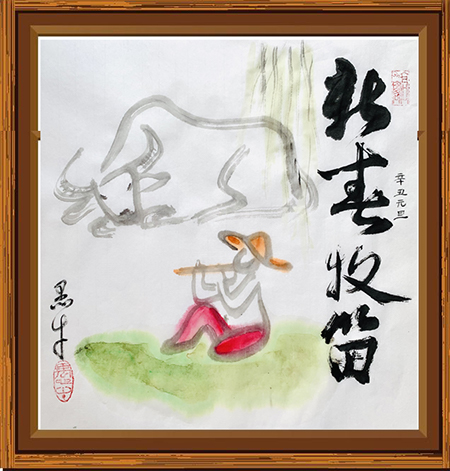 新春牧笛
辛丑元旦
墨牛